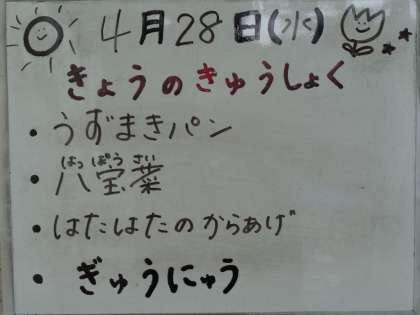 4月28日(水)
きょうのきゅうしょく
・うずまきパン
はっぽうさい
・八宝菜
・はたはたのからあげ
・ぎゅうにゅう